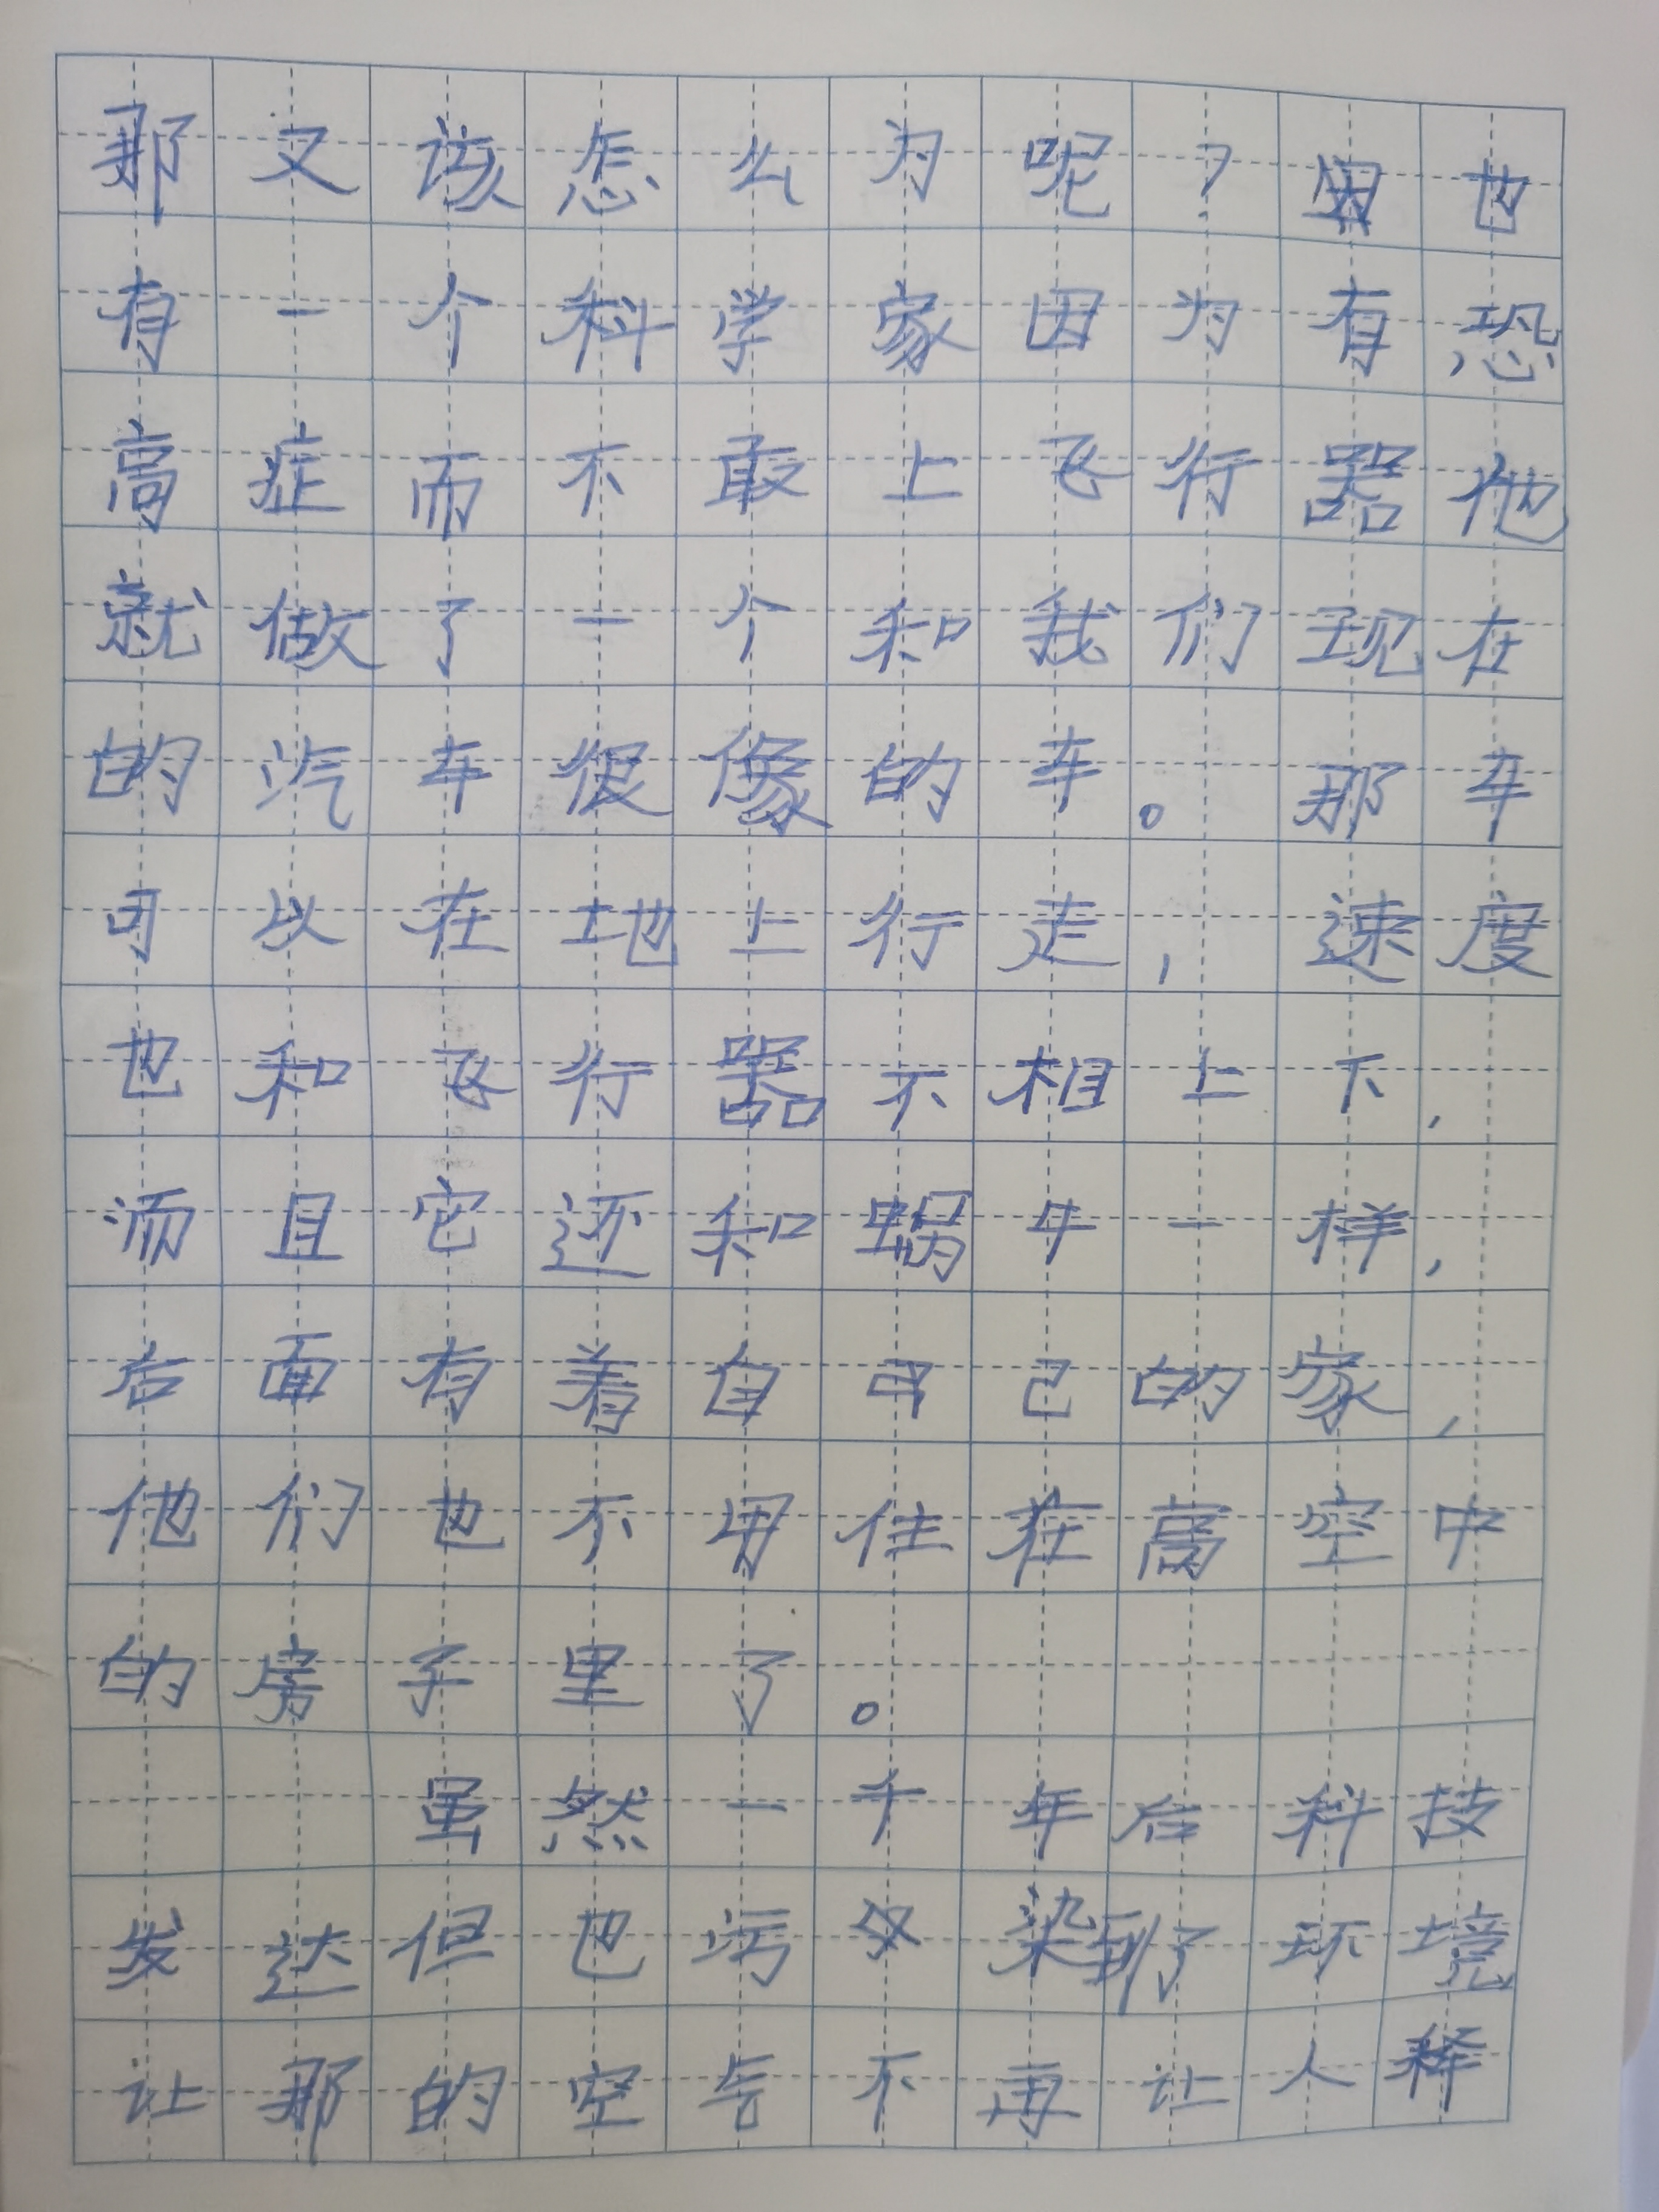 那又该怎么为呢？因也
有一个科学家因为有恐
高症而不敢上飞行器他
就做了一个和我们现在
的汽车很像的车。那车
可以在地上行走，速度
也和飞行器不相上下，
而且它还和蜗牛一样，
后面有着自己的家，
他们也不用住在高空中
的房子里了。
虽然一千年后科技
发达但也污染到了环境
让那的空气不再让人释